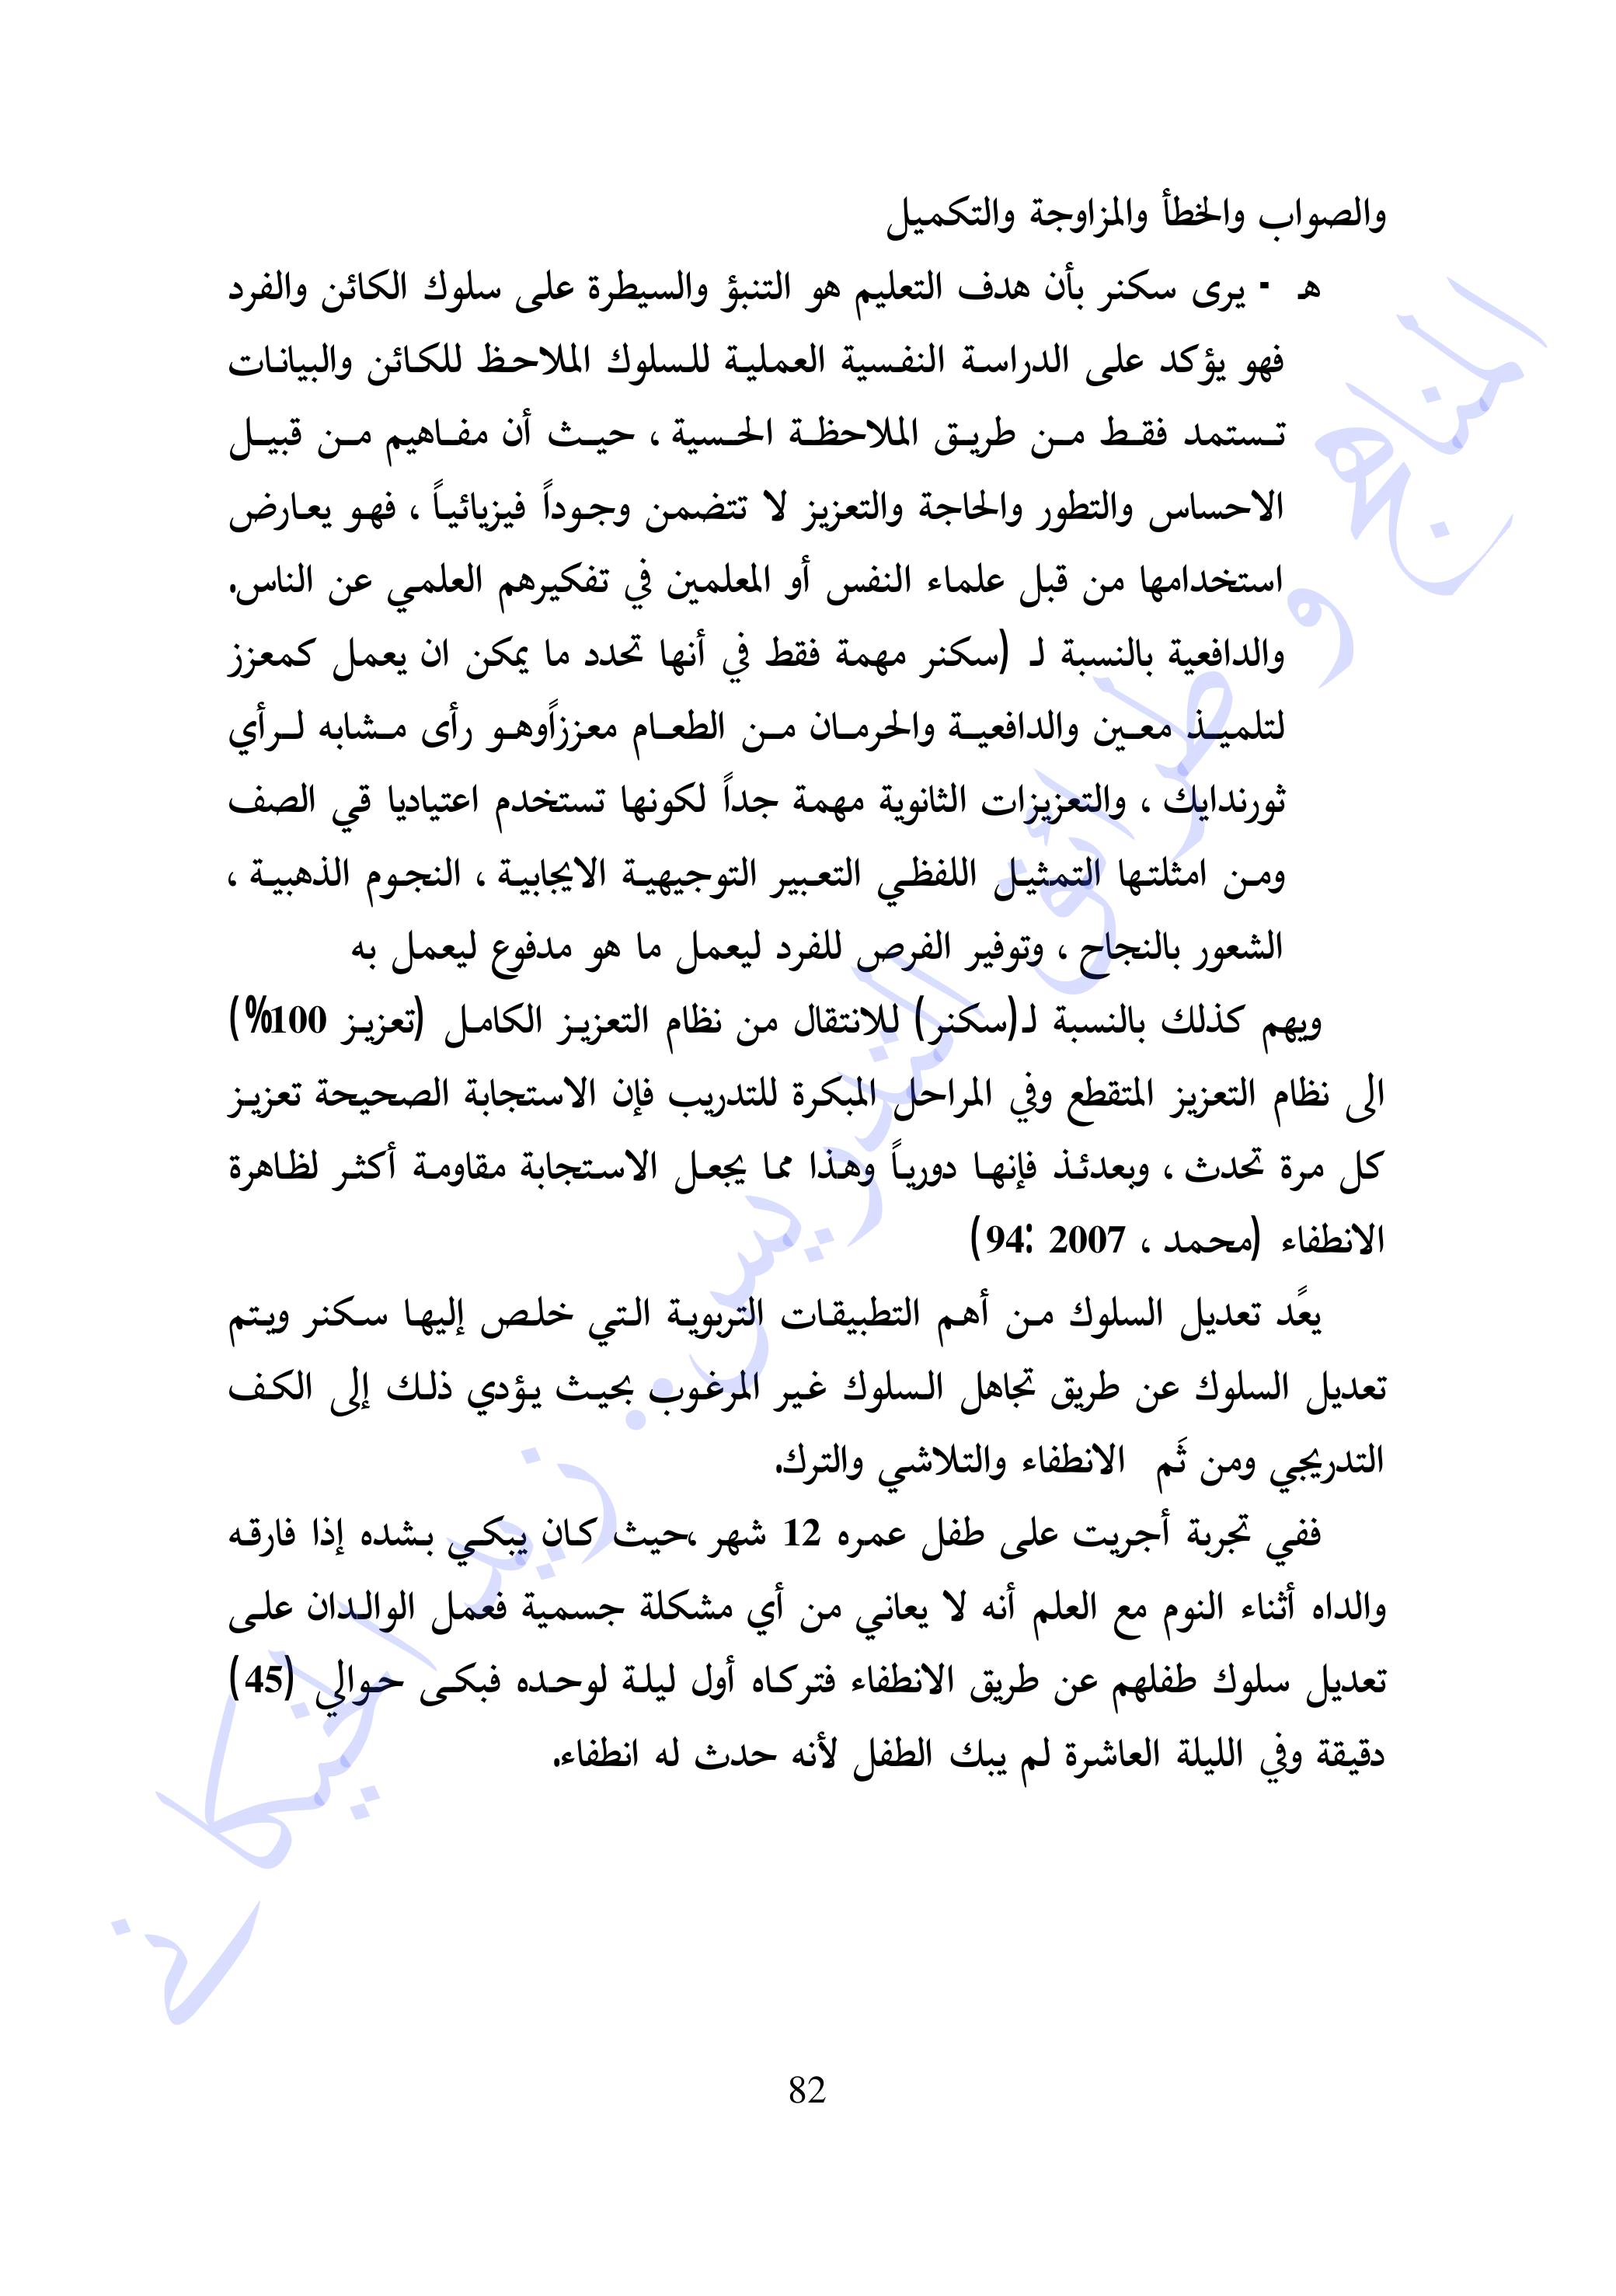 والصواب والخطأ والمزاوجة والتكميل
هـ - يرى سكنر بأن هدف التعليم هو التنبؤ والسيطرة على سلوك الكائن والفرد
فهو يؤكد على الدراسة النفسية العملية للسلوك الملاحظ للكائن والبيانات
تستمد فقط من طريق الملاحظة الحسية ، حيث أن مفاهيم من قبيل
الاحساس والتطور والحاجة والتعزيز لا تتضمن وجوداً فيزيائياً ، فهو يعارض
استخدامها من قبل علماء النفس أو المعلمين في تفكيرهم العلمي عن الناس.
والدافعية بالنسبة لـ (سكنر مهمة فقط في أنها تحدد ما يمكن ان يعمل كمعزز
لتلميذ معين والدافعية والحرمان من الطعام معززاًوهو رأى مشابه لرأي
ثورندايك ، والتعزيزات الثانوية مهمة جداً لكونها تستخدم اعتياديا قي الصف
ومن امثلتها التمثيل اللفظي التعبير التوجيهية الايجابية ، النجوم الذهبية ،
الشعور بالنجاح ، وتوفير الفرص للفرد ليعمل ما هو مدفوع ليعمل به
ويهم كذلك بالنسبة لـ(سكنر) للانتقال من نظام التعزيز الكامل (تعزيز 100%)
الى نظام التعزيز المتقطع وفي المراحل المبكرة للتدريب فإن الاستجابة الصحيحة تعزيز
كل مرة تحدث ، وبعدئذ فإنها دورياً وهذا مما يجعل الاستجابة مقاومة أكثر لظاهرة
الانطفاء (محمد ، 2007 :94)
يعًد تعديل السلوك من أهم التطبيقات التربوية التي خلص إليها سكنر ويتم
تعديل السلوك عن طريق تجاهل السلوك غير المرغوب بحيث يؤدي ذلك إلى الكف
التدريجي ومن ثَم الانطفاء والتلاشي والترك.
ففي تجربة أجريت على طفل عمره 12 شهر ،حيث كان يبكي بشده إذا فارقه
والداه أثناء النوم مع العلم أنه لا يعاني من أي مشكلة جسمية فعمل الوالدان على
تعديل سلوك طفلهم عن طريق الانطفاء فتركاه أول ليلة لوحده فبكى حوالي (45)
دقيقة وفي الليلة العاشرة لم يبك الطفل لأنه حدث له انطفاء.
82